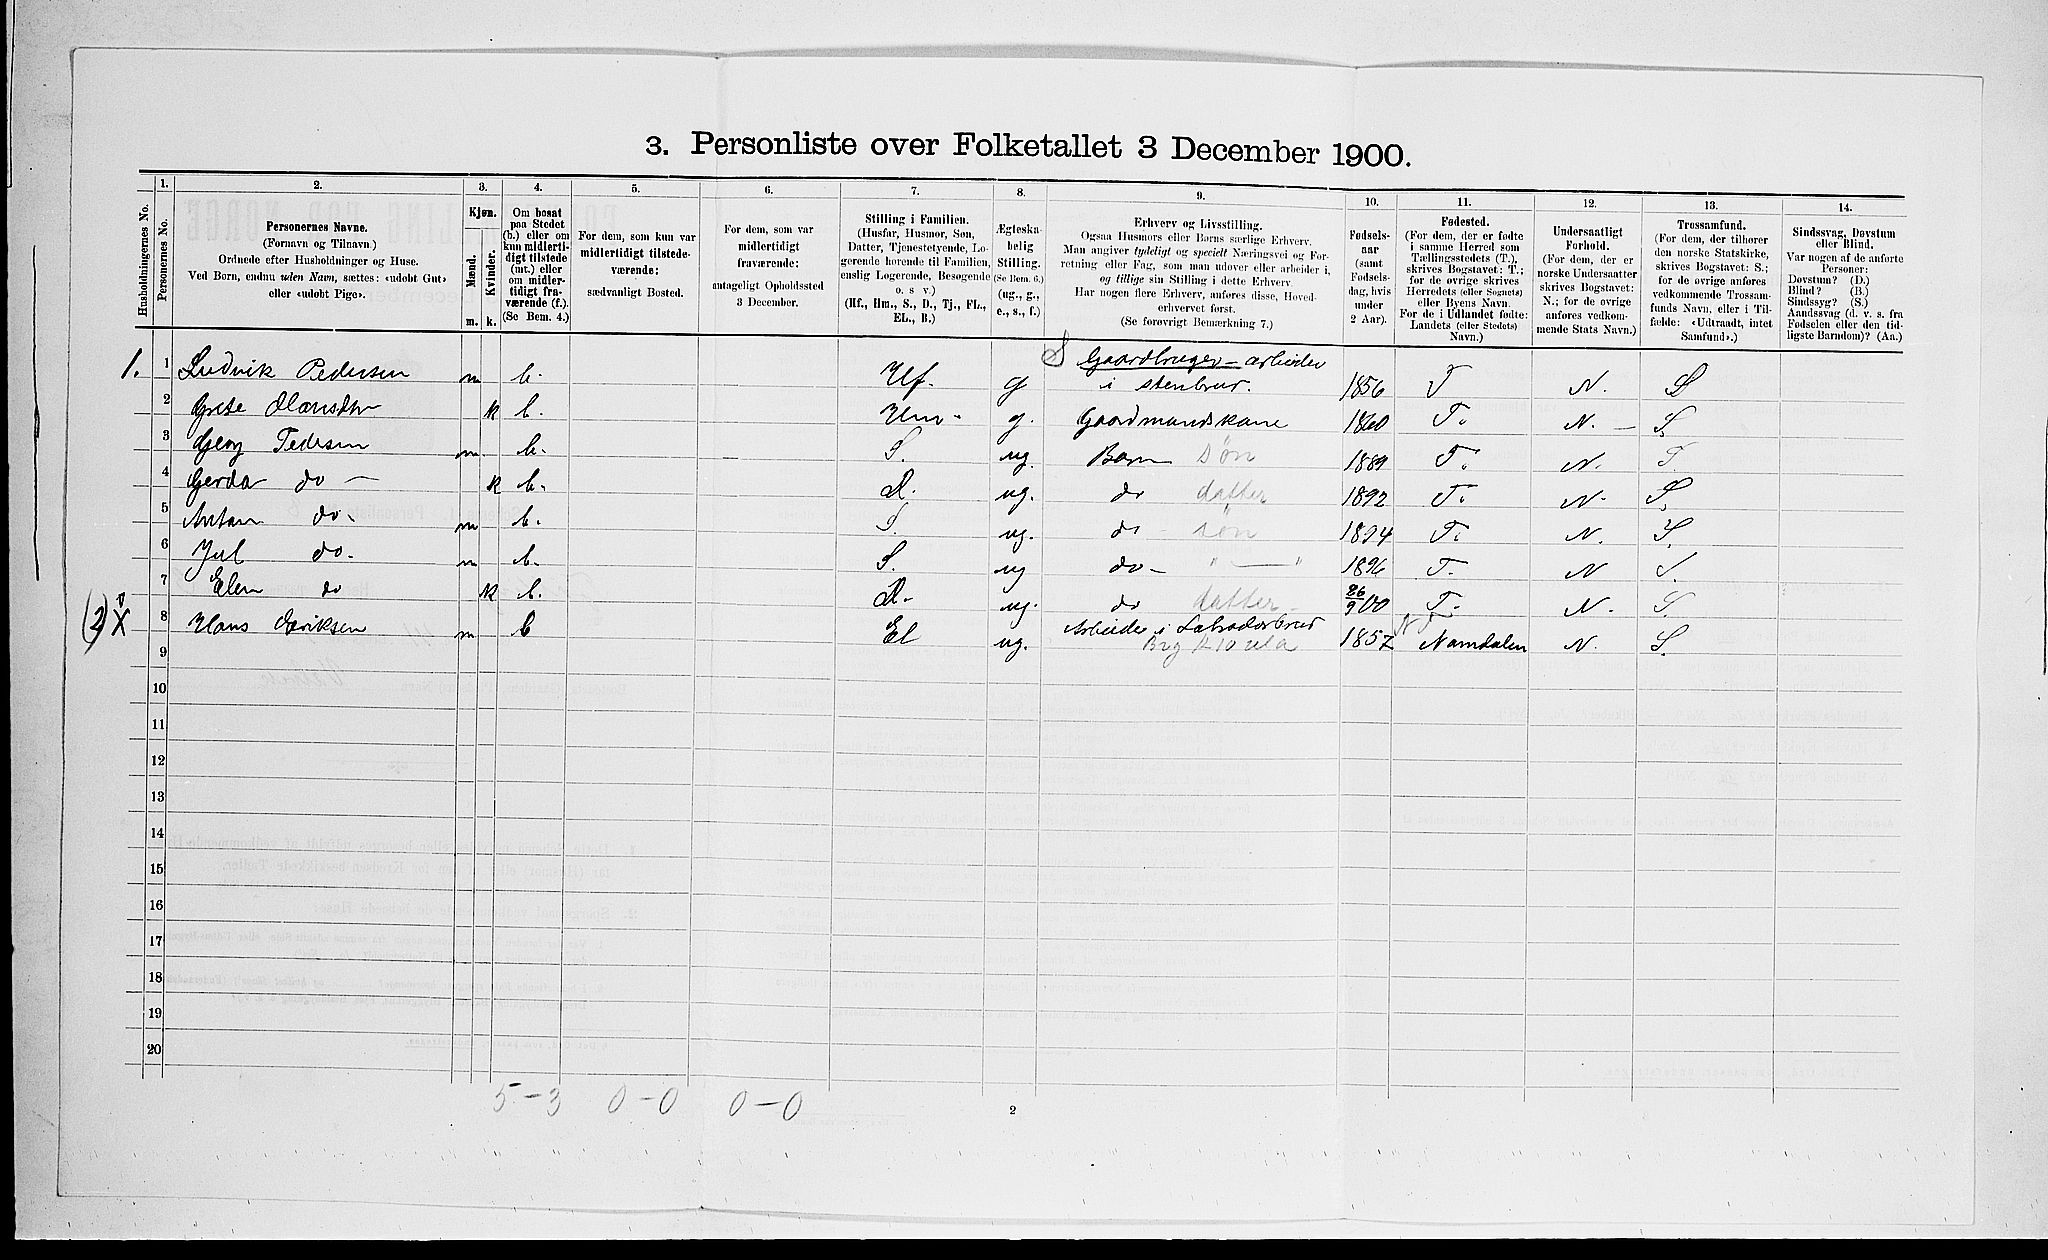 3. Personliste over Folketallet 3 December 1900.
Husholdningernes No.
1.
Personernes No.
2.
Personernes Navne.
(Fornavn og Tilnavn.)
Ordnede efter Husholdninger og Huse.
Ved Børn, endnu uden Navn, sættes: «udøbt Gut»
eller «udøbt Pige».
3.
Kjøn.
Mænd.
Kvinder.
m. k.
4.
Om bosat
paa Stedet
(b.) eller om
kun midlerti-
digt tilstede
(mt.) eller
om midler-
tidigt fra-
værende (f.).
(Se Bem. 4.)
5.
For dem, som kun var
midlertidigt tilstede-
værende:
sædvanligt Bosted.
6.
For dem, som var
midlertidigt
fraværende:
antageligt Opholdssted
3 December.
7.
Stilling i Familien.
(Husfar, Husmor, Søn,
Datter, Tjenestetyende, Lo-
gerende hørende til Familien,
enslig Logerende, Besøgende
o. s v.)
(Hf., Hm., S., D., Tj., FL.,
EL., B.)
8.
Ægteska-
belig
Stilling.
(Se Bem. 6.)
(ug., g.,
e., s., f.)
9.
Erhverv og Livsstilling.
Ogsaa Husmors eller Børns særlige Erhverv.
Man angiver tydeligt og specielt Næringsvei og For-
retning eller Fag, som man udøver eller arbeider i,
og tillige sin Stilling i dette Erhverv.
Har nogen flere Erhverv, anføres disse, Hoved-
erhvervet først.
(Se forøvrigt Bemærkning 7.)
10.
Fødsels-
aar
(samt
Fødsels-
dag, hvis
under
2 Aar).
11.
Fødested.
(For dem, der er fødte
i samme Herred som
Tællingsstedets (T.),
skrives Bogstavet: T.;
for de øvrige skrives
Herredets (eller Sognets)
eller Byens Navn.
For de i Udlandet fødte:
Landets (eller Stedets)
Navn.)
12.
Undersaatligt
Forhold.
(For dem, der er
norske Undersaatter
skrives Bogstavet:
N.; for de øvrige
anføres vedkom-
mende Stats Navn.)
13.
Trossamfund.
(For dem, der tilhører
den norske Statskirke,
skrives Bogstavet: S.;
for de øvrige anføres
vedkommende Trossam-
funds Navn, eller i Til-
fælde: «Udtraadt, intet
Samfund».)
14.
Sindssvag, Døvstum
eller Blind.
Var nogen af de anførte
Personer:
Døvstum? (D.)
Blind? (B.)
Sindssyg? (S.)
Aandssvag (d. v. s. fra
Fødselen eller den tid-
ligste Barndom)? (Aa.)
1. 1 Ludvik Pedersen m b. Hf. g Gaardbruger - arbeider i stenbrud. 1856 T N. S
2 k b. Hm. g. Gaardmandskone 1860 T. N. - S.
3 Georg Pedersen m b. S. ug. Barn søn 1889 T. N. S.
4 Gerda do - k b. D. ug. do datter 1892 T. N. S.
5 Anton do. m b. S. ug. do søn 1894 T. N. S.
6 Jul do. m b. S. ug do - " — " 1896 T. N S.
7 Elen do k b. D. ug. do datter 26/9 00 T. N. S.
(2) X 8 Hans Eriksen m b El ug. Arbeider i Labradorbrud 1857 Namdalen N. S.
9
10
11
12
13
14
15
16
17
18
19
20
5 - 3 0 - 0 0 - 0
2